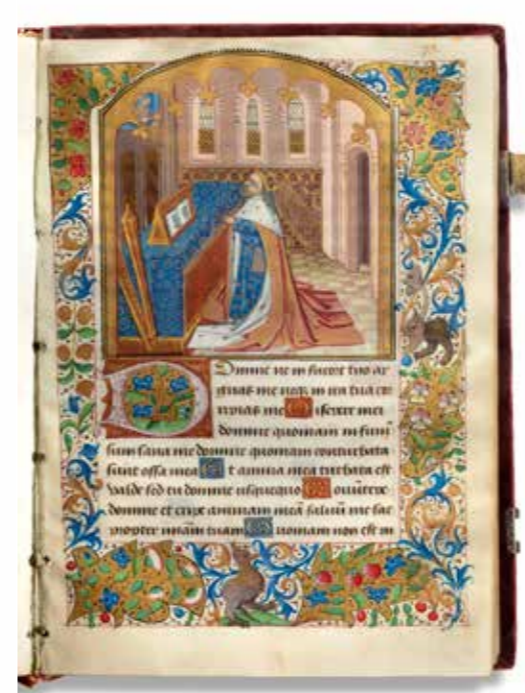 Domine ne in furore tuo ar
guas me neq; in ira tua cor
ripias me Miserere mei
domine quoniam infirm
sum sana me domine quoniam conturbata
sunt ossa mea Et anima mea turbata est
valde sed tu domine usquequo Conuertere
domine et eripe animam meā saluū me fac
propter miām tuam Quoniam non est in